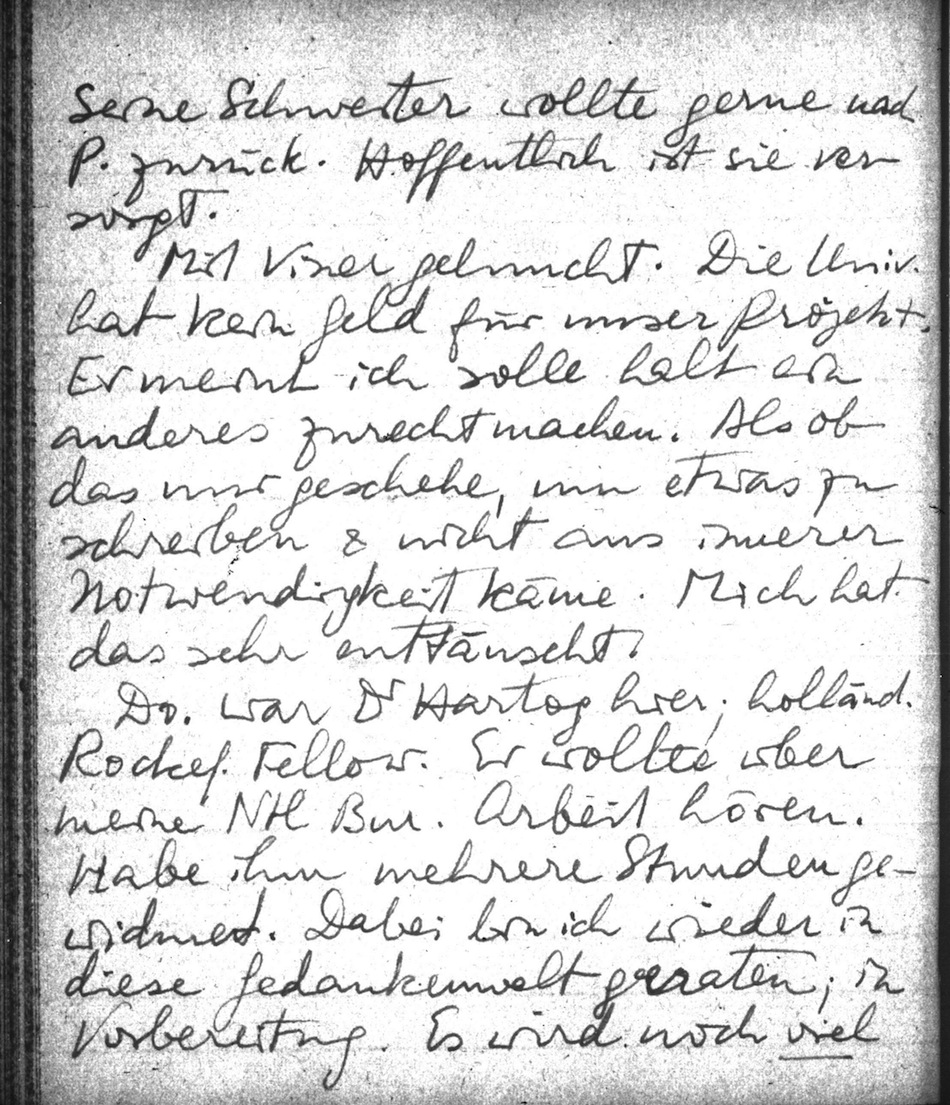 Seine Schwester wollte gerne nach
P. zurück. Hoffentlich ist sie ver-
sorgt.
Mit Viner geluncht. Die Univ.
hat kein Geld für unser Projekt.
Er meint ich solle halt ein
anderes zurechtmachen. Als ob
das nur geschehe, um etwas zu
schreiben & nicht aus innerer
Notwendigkeit käme. Mich hat
das sehr enttäuscht.
Do. war Dr Hartog hier; holländ.
Rockef. Fellow. Er wollte über
meine NH Bur. Arbeit hören.
Habe ihm mehrere Stunden ge-
widmet. Dabei bin ich wieder in
diese Gedankenwelt geraten; in
Vorbereitung. Es wird noch viel